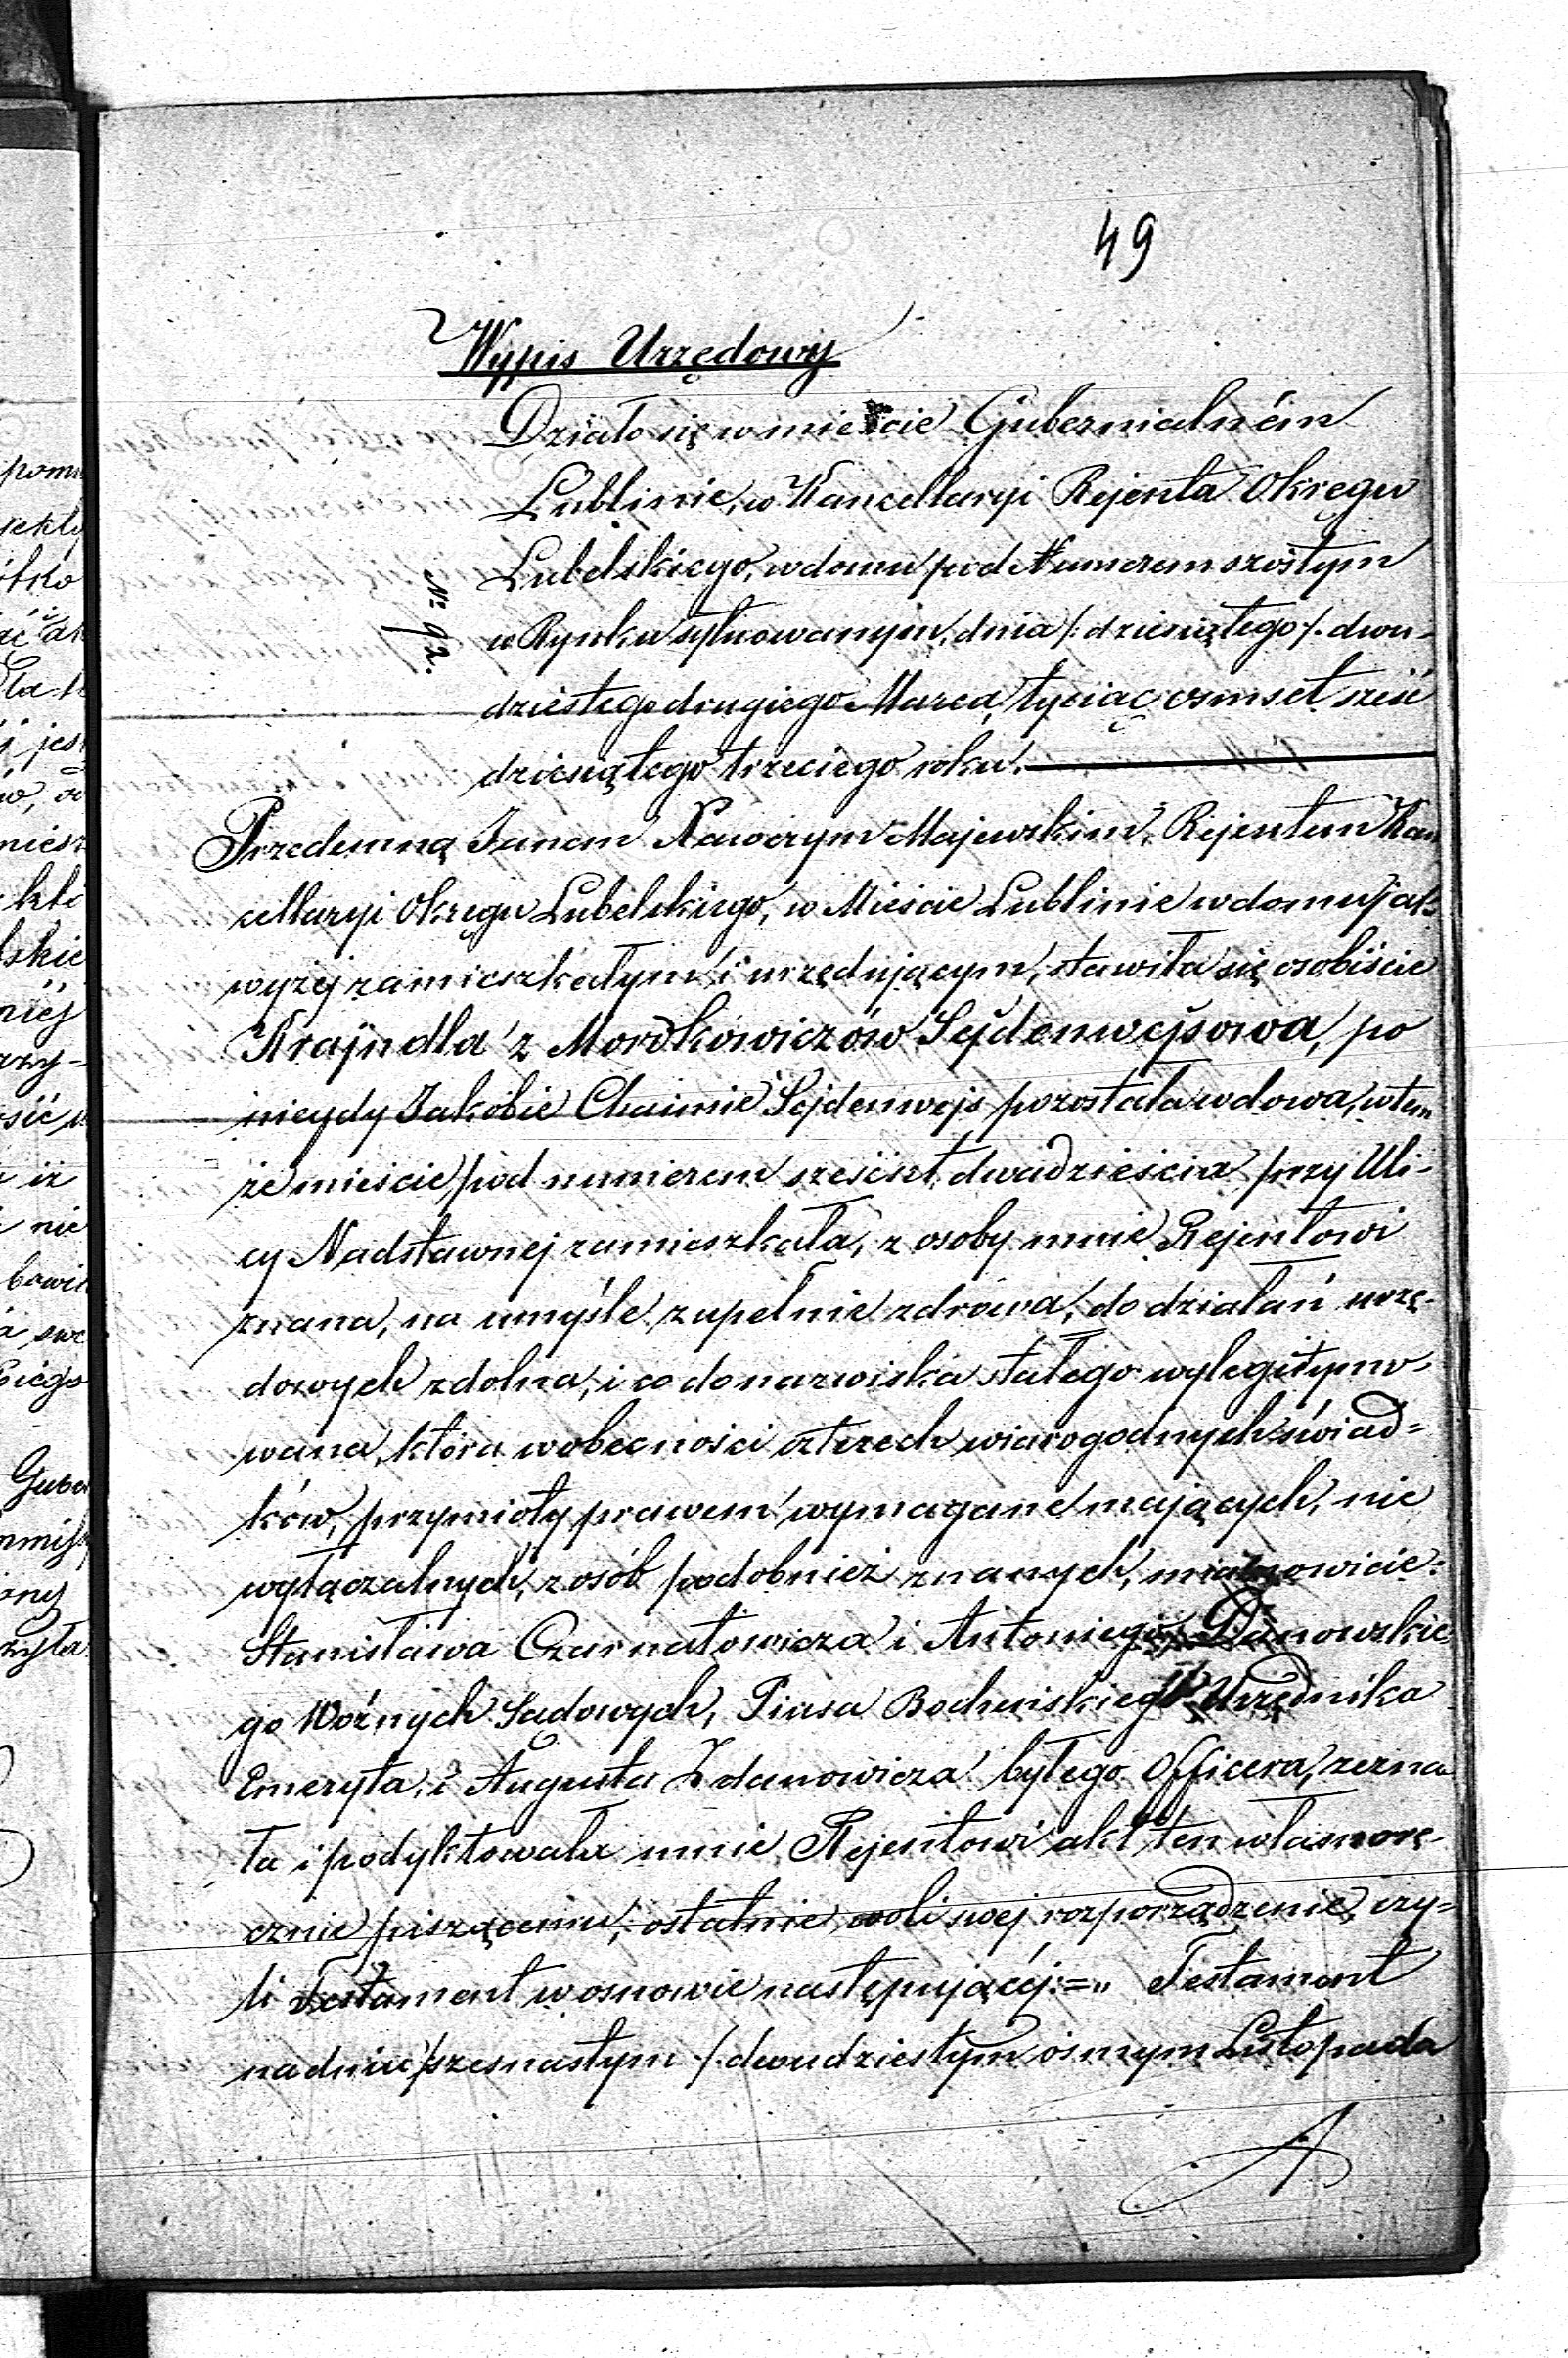 49
Wypis Urzędowy
Działo się w mieście Gubernialném
Lublinie, w Kancellaryi Rejenta Okręgu
Lubelskiego, w domu pod Numerem szóstym
№ 92.
w Rynku sytuowanym, dnia /: dziesiątego /. dwu-
dziestego drugiego Marca, tysiąc osmset sześć
dziesiątego trzeciego roku.
Przedemną Janem Nawerym Majewskim, Rejentem Kan
cellaryi Okręgu Lubelskiego, w Mieście Lublinie w domu jak
wyżej zamieszkałym i urzędującym, stawiła się osobiście
Krajndla z Mordkowiczów Sejdenwejsowa, po
niegdy Jakóbie Chaimie Sejdenwejs pozostała wdowa, w tem
że mieście pod numerem sześćset dwadzieścia przy Uli-
cy Nadstawnej zamieszkała, z osoby mnie Rejentowi
znana, na umyśle zupełnie zdrowa, do działań urzę-
dowych zdolna, i co do nazwiska stałego wylegitymo-
wana, która w obecności czterech wiarogodnych świad=
ków, przymioty prawem wymagane mających, nie
wyłączalnych, z osób podobnież znanych, mianowicie:
Stanisława Czarnatowicza i Antoniego Danowskie
go Woźnych Sądowych, Piusa Bocheńskiego Urzędnika
Emeryta, i Augusta Zdanowicza byłego Officera, zezna
ła i podyktowała mnie Rejentowi akt ten własnorę-
cznie piszącemu, ostatnie woli swej rozporządzenie, czy=
li Testament w osnowie następującéj: =„ Testament
na dniu szesnastym /. dwudziestym osmym Listopada